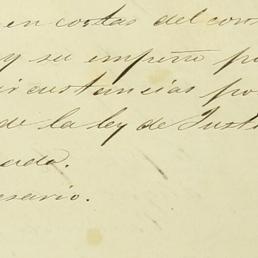 en costas del con
y su empeño po
circunstancias po
de la ley de Justi
uada.
esario.